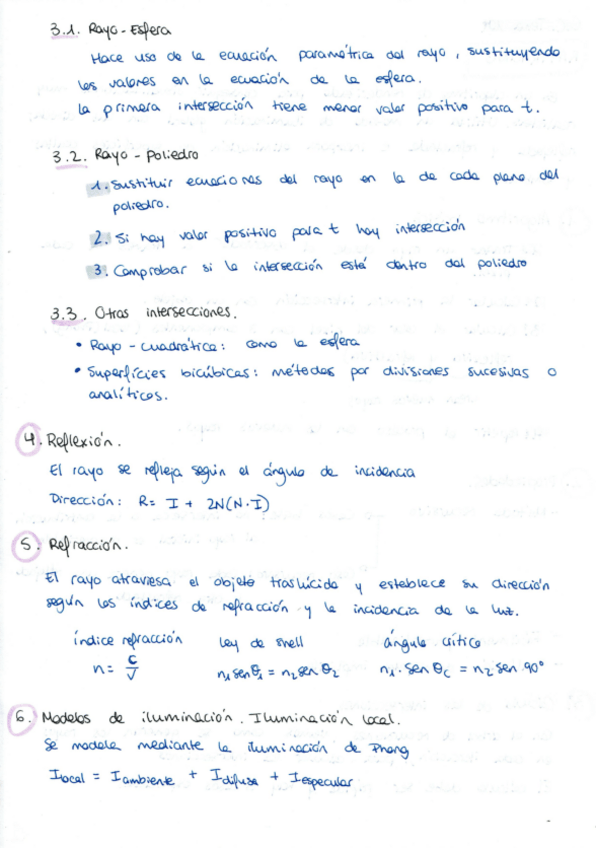 3.1. Rayo - Esfera
Hace uso de la ecuación paramétrica del rayo, sustituyendo
los valores en la ecuación de la esfera.
La primera intersección tiene menor valor positivo para t.
3.2. Rayo - Poliedro
1. Sustituir ecuaciones del rayo en la de cada plano del
poliedro.
2. Si hay valor positivo para t hay intersección
3. Comprobar si la intersección está dentro del poliedro
3.3. Otras intersecciones.
• Rayo - cuadrática: como la esfera
• Superfícies bicúbicas: métodos por divisiones sucesivas o
analíticos.
4. Reflexión.
El rayo se refleja según el ángulo de incidencia
Dirección: R = I + 2N(N·I)
5. Refracción.
El rayo atraviesa el objeto traslúcido y establece su dirección
según los índices de refracción y la incidencia de la luz.
índice refracción ley de snell ángulo crítico
n = c/v n₁ sen θ₁ = n₂ sen θ₂ n₁· sen θc = n₂ sen 90°
6. Modelos de iluminación. Iluminación local.
Se modela mediante la iluminación de Phong
Ilocal = Iambiente + Idifusa + Iespecular